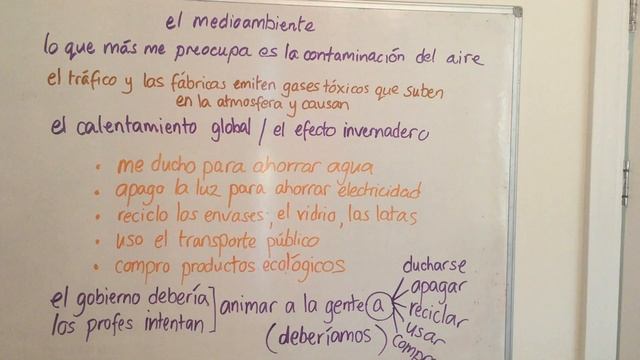 el medioambiente
lo que más me preocupa es la contaminación del aire
el tráfico y las fábricas emiten gases tóxicos que suben
en la atmosfera y causan
el calentamiento global / el efecto invernadero
• me ducho para ahorrar agua
• apago la luz para ahorrar electricidad
• reciclo los envases, el vidrio, las latas
• uso el transporte público
• compro productos ecológicos
el gobierno debería] animar a la gente a
los profes intentan
(deberíamos)
ducharse
apagar
reciclar
usar